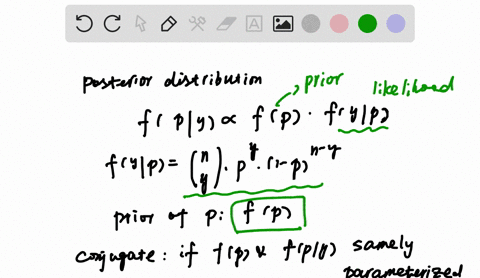 prior
posterior distribution likelihood
f(p|y) ∝ f(p) · f(y|p)
f(y|p) = (n y) · p^y · (1-p)^{n-y}
prior of p: f(p)
conjugate: if f(p) & f(p|y) samely
parameterized